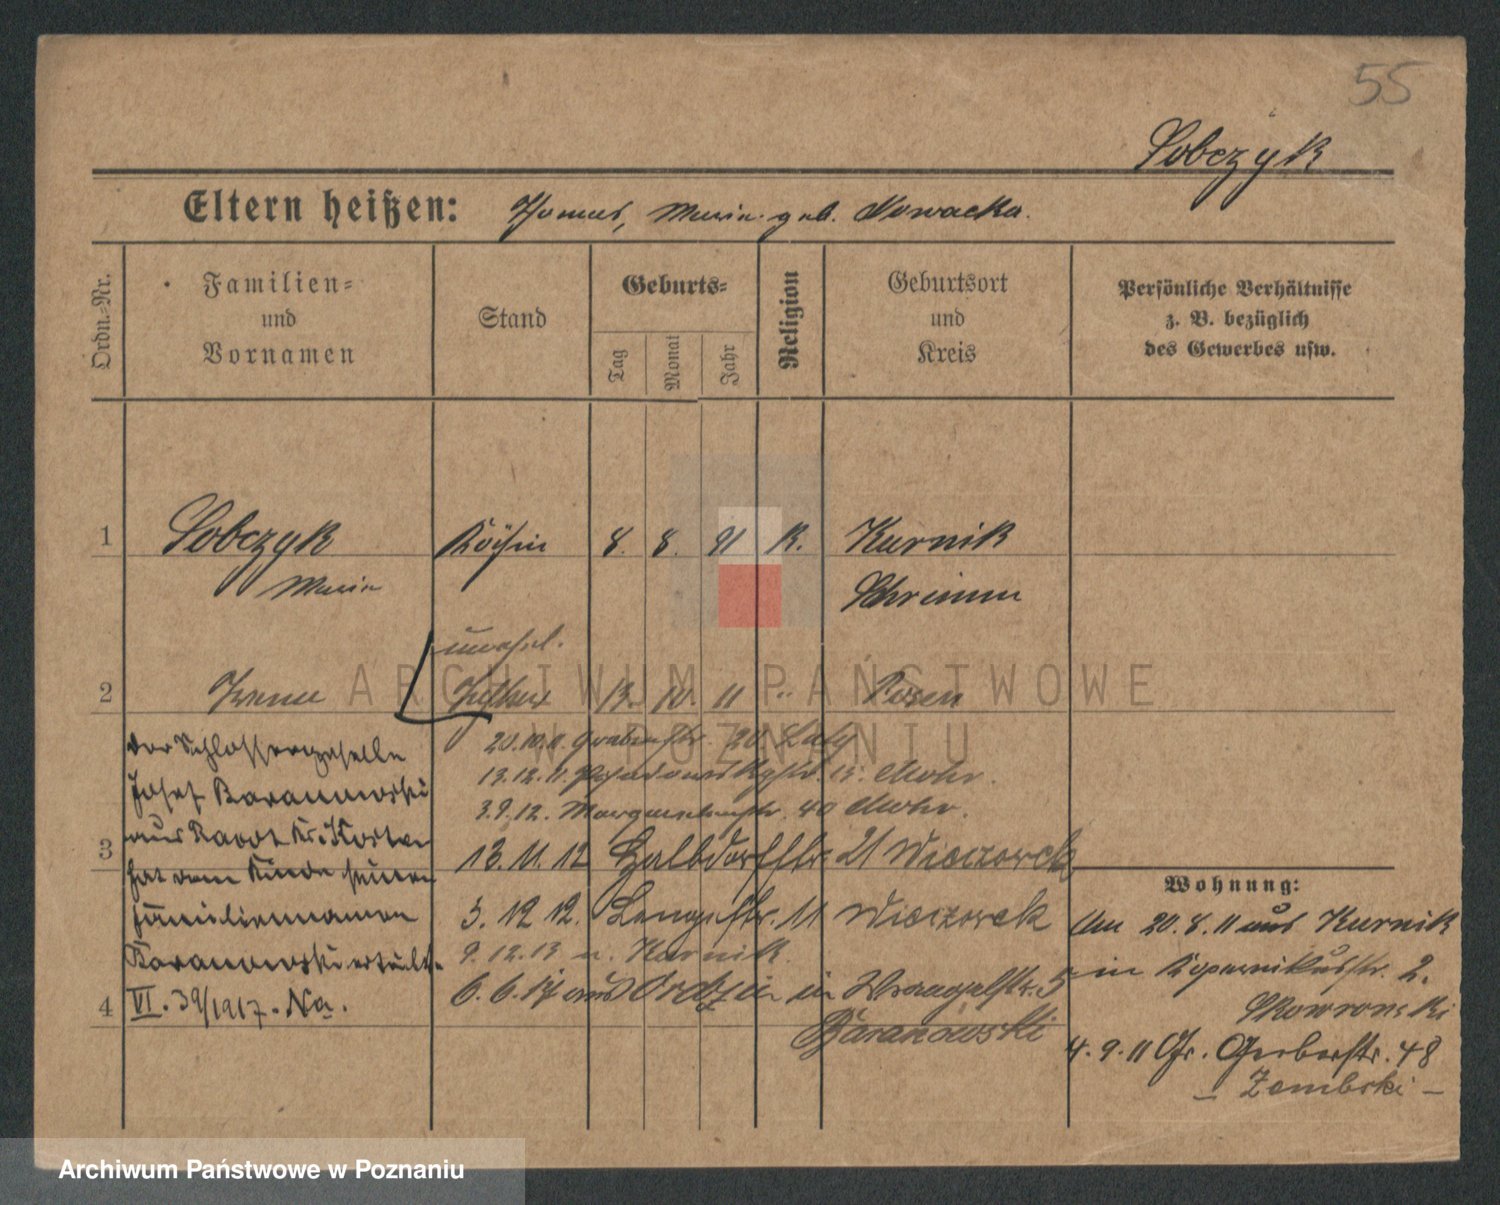 55
Sobczyk
Eltern heißen: Thomas, Marie geb. Nowacka.
Ordn.-Nr.
Familien-
und
Vornamen
Stand
Geburts-
Tag
Monat
Jahr
Religion
Geburtsort
und
Kreis
Persönliche Verhältnisse
z. B. bezüglich
des Gewerbes usw.
1 Sobczyk Köchin 8. 8. 91 K. Kurnik
Marie Schrimm
unehel.
2 Irene Tochter 13. 10. 11 " Posen
ARCHIWUM PAŃSTWOWE
W POZNANIU
20.10.11. Grabenstr. 20
13.12.11. 15. Mohr.
3.9.12. 40 Mohr.
3 13.11.12 Halbdorfstr. 21 Wieczorek
5.12.12. Langestr. 11 Wieczorek
9.12.13 n. Kurnik.
6.6.17 aus in Wrangelstr. 5
Baranowski
der Schlossergeselle
Josef Baranowski
aus
hat dem Kinde seinen
Familiennamen
Baranowski erteilt.
4 VI. 39/1917. Na.
Wohnung:
Am 20.8.11 aus Kurnik
in Kopernikusstr. 2.
Skowronski
4.9.11 Gr. Gerberstr. 48
– Zembski –
Archiwum Państwowe w Poznaniu